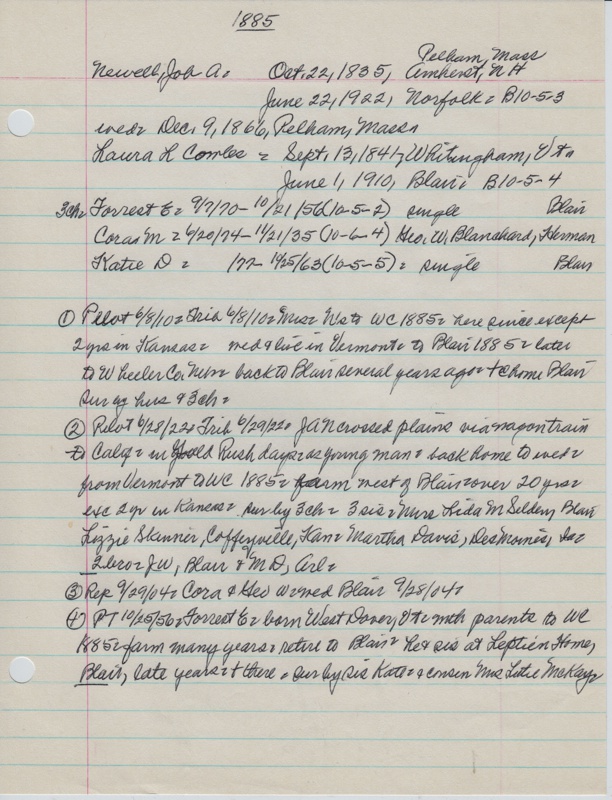 1885
Pelham, Mass
Newell, Job A= Oct. 22, 1835, Amherst, NH
June 22, 1922, Norfolk= B10-5-3
wed= Dec. 9, 1866, Pelham, Mass=
Laura L Combs = Sept. 13, 1841, Whitingham, Vt=
June 1, 1910, Blair= B10-5-4
3ch= Forrest E= 9/7/70- 10/21/56 (10-5-2) single Blair
Cora M= 6/20/74- 11/21/35 (10-6-4) Geo. W. Blanchard, Herman
Katie D = /77- 11/25/63 (10-5-5)= single Blair
① Pilot 6/8/10= Trib 6/8/10= Mrs= to WC 1885= here since except
2 yrs in Kansas= wed & live in Vermont= to Blair 1885= later
to Wheeler Co Neb= back to Blair several years ago= home Blair
sur by hus & 3ch=
② Pilot 6/28/22= Trib 6/29/22= JAN crossed plains via wagon train
to Calif= in Gold Rush days= as young man= back home to wed=
from Vermont to WC 1885= farm west of Blair= over 20 yrs=
exc 2 yr in Kansas= sur by 3ch= 3 sis= Mrs Lida M Selden, Blair
Lizzie Skinner, Coffeyville, Kan= Martha Davis, Des Moines, Ia=
2 bro= J W, Blair & M D, Ark=
③ Rep 9/29/04= Cora & Geo W= wed Blair 9/28/04=
④ PT 10/25/56= Forrest E= born West Dover, Vt= with parents to WC
1885= farm many years= retire to Blair= he & sis at Leptien Home,
Blair, late years= & there = sur by sis Kate= & cousin Mrs McKay=